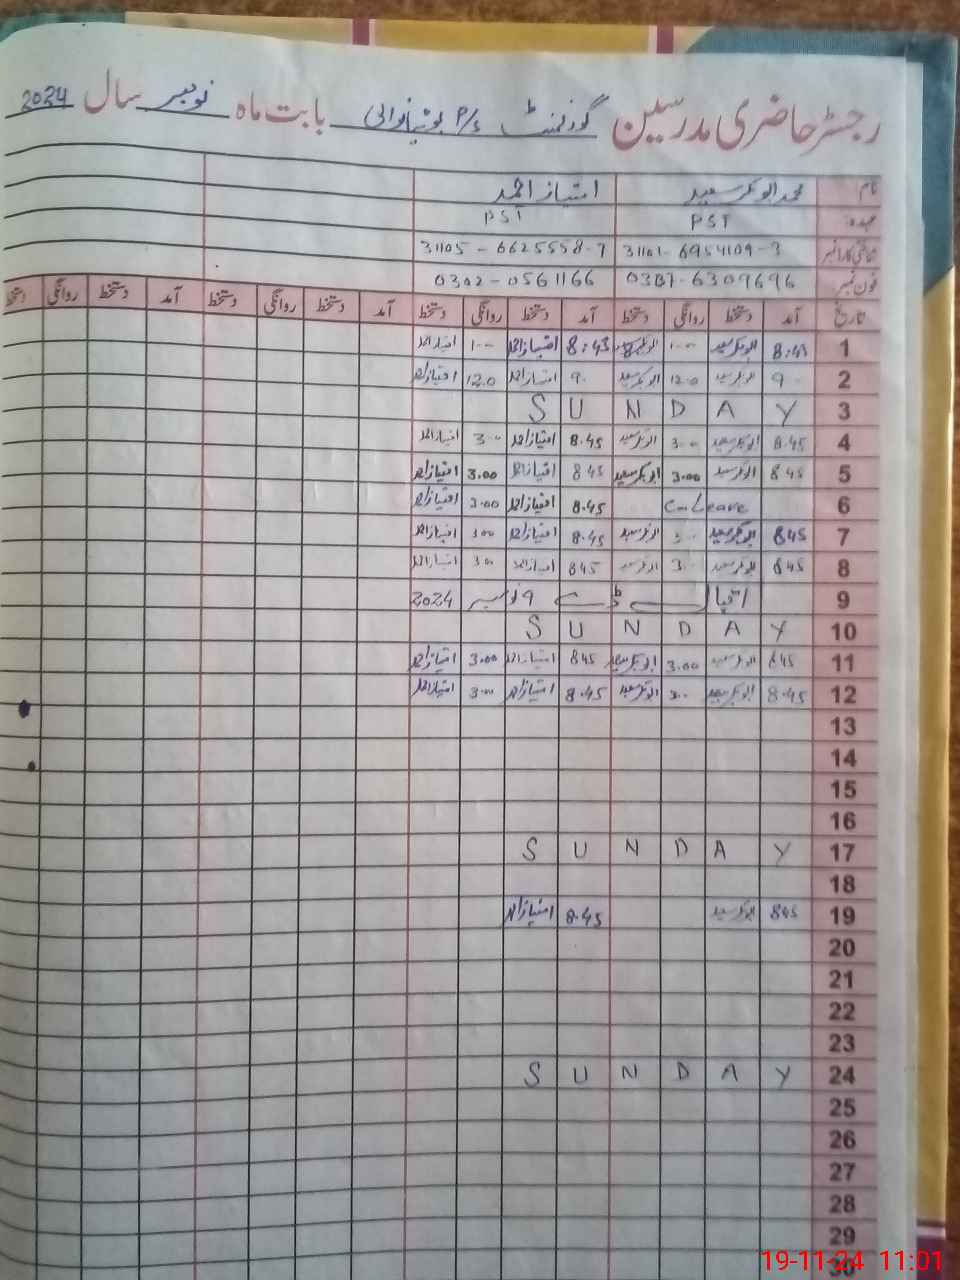 رجسٹر حاضری مدرسین گورنمنٹ P/s بابت ماہ نومبر سال 2024
نام محمد ابوبکر سعید امتیاز احمد
عہدہ PST PST
شناختی کارڈ نمبر 31101-6954109-3 31105-6625558-7
فون نمبر 6309696 0302-0561166
تاریخ آمد دستخط روانگی دستخط آمد دستخط روانگی دستخط آمد دستخط روانگی دستخط آمد دستخط روانگی دستخط
1 8:43 ابوبکر سعید 1-00 ابوبکر سعید 8:43 امتیاز احمد 1-00 امتیاز احمد
2 9 ابوبکر سعید 12.0 ابوبکر سعید 9 امتیاز احمد 12.0 امتیاز احمد
3 SUNDAY
4 8.45 ابوبکر سعید 3.00 ابوبکر سعید 8.45 امتیاز احمد 3.00 امتیاز احمد
5 8 45 ابوبکر سعید 3.00 ابوبکر سعید 8 45 امتیاز احمد 3.00 امتیاز احمد
6 C-Leave 8.45 امتیاز احمد 3.00 امتیاز احمد
7 845 ابوبکر سعید 3.0 ابوبکر سعید 8.45 امتیاز احمد 3.00 امتیاز احمد
8 845 ابوبکر سعید 3.0 ابوبکر سعید 845 امتیاز احمد 3.00 امتیاز احمد
9 اقبال ڈے 9 نومبر 2024
10 SUNDAY
11 845 ابوبکر سعید 3.00 ابوبکر سعید 845 امتیاز احمد 3.00 امتیاز احمد
12 8.45 ابوبکر سعید 3.0 ابوبکر سعید 8.45 امتیاز احمد 3.00 امتیاز احمد
13
14
15
16
17 SUNDAY
18
19 845 ابوبکر سعید 8.45 امتیاز احمد
20
21
22
23
24 SUNDAY
25
26
27
28
29
30
19-11-24 11:01